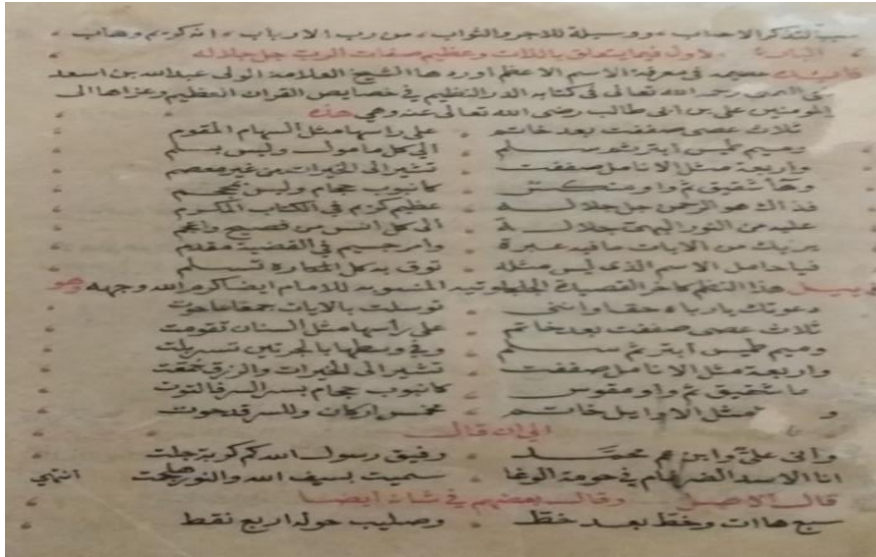 سبباً لتذكر الاحباب، ووسيلة للاجر والثواب، من رب الارباب، انه كريم وهاب،
الباب الاول فيما يتعلق بالذات وعظيم صفات الرب جل جلاله
في معرفة الاسم الاعظم اوردها الشيخ العلامة الولى عبد الله بن اسعد
رحمه الله تعالى فى كتابه الدر النظيم فى خصايص القران العظيم وعزاها الى
المومنين على بن ابى طالب رضى الله تعالى عنه وهى هذه
ثلاث عصى صففت بعد خاتم على راسها مثل السهام المقوم
وميم طميس ابتر ثم سلم الى كل مامول وليس بسلم
واربعة مثل الانامل صففت تشير الى الخيرات من غير معصم
وهاء شقيق ثم واو منكس كانبوب حجام وليس بمحجم
فذاك هو الرحمن جل جلاله عظيم كريم في الكتاب المكرم
عليه من النور البهى جلالة الى كل انس من فصيح واعجم
يريك من الايات ما فيه عبرة وامر جسيم في القضية مقدم
فيا حامل الاسم الذى ليس مثله توق به كل المكاره تسلم
هذا النظم كاخر القصيدة الجلجلوتيه المنسوبه للامام ايضا كرم الله وجهه وهو
دعوتك يارباه حقا وانني توسلت بالايات جمعا بما حوت
ثلاث عصى صففت بعد خاتم على راسها مثل السنان تقومت
وميم طميس ابتر ثم سلم وفى وسطها بالجرتين تسربلت
واربعة مثل الانامل صففت تشير الى الخيرات والرزق جمعت
هاء شقيق ثم واو مقوس كانبوب حجام بسر السر فالتوت
و مثل الاوايل خاتم خمس اركان وللسر قد حوت
الى ان قال
وانى على وابن عم محمد رفيق رسول الله كم كربة جلت
انا الاسد الضرغام في حومة الوغا سميت بسيف الله والنور هللت انتهى
قال الاصل وقال بعضهم في شان ايضا
سبع هاات وخط بعد خط وصليب حوله اربع نقط